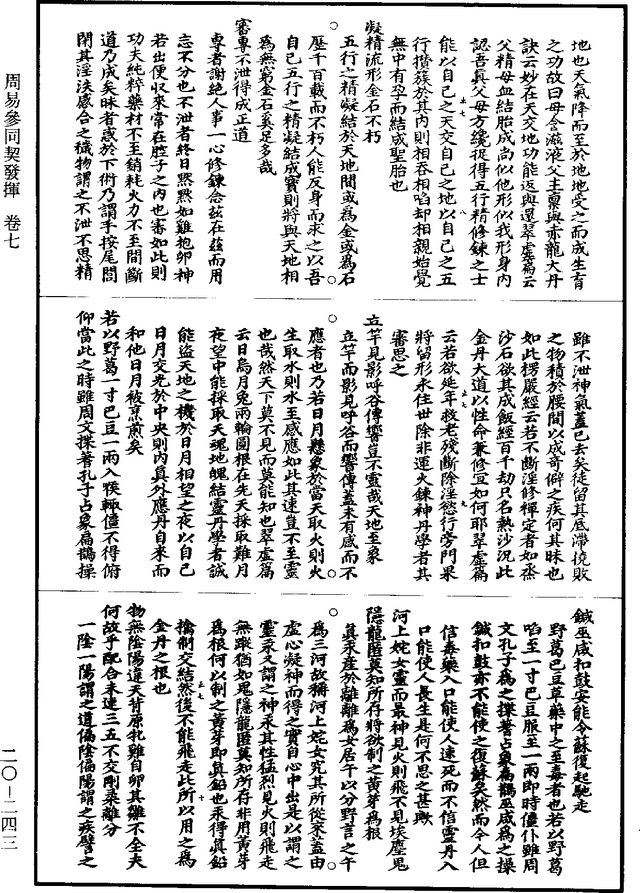 地也天氣降而至於地地受之而成生育
之功故曰母含滋液父主稟與赤龍大丹
訣云妙在天交地功能返與還翠虛篇云
父精母血結胎成尚似他形似我形身內
認吾真父母方纔捉得五行精修鍊之士
能以自己之天交自己之地以自己之五
行攢簇於其內則相吞相啗却相親始覺
無中有孕而結成聖胎也
凝精流形金石不朽
五行之精凝結於天地間或為金或為石
歷千百載而不朽人能反身而求之以吾
自己五行之精凝結成寶則將與天地相
為無窮金石奚足多哉
審專不泄得成正道
專者謝絕人事一心修鍊念茲在茲而用
志不分也不泄者終日默默如雞抱卵神
若出便收來常在腔子之內也審如此則
功夫純粹藥材不至銷耗火力不至間斷
道乃成矣昧者惑於下術乃謂手按尾閭
閉其淫泆感合之穢物謂之不泄不思精
雖不泄神氣蓋已去矣徒留其底滯撓敗
之物積於腰間以成奇僻之疾何其昧也
如此楞嚴經云若不斷淫修禪定者如烝
沙石欲其成飯經百千劫只名熱沙況此
金丹大道以性命兼修豈如何耶翠虛篇
云若欲延年救老殘斷除淫慾行旁門果
將留形永住世除非運火鍊神丹學者其
審思之
立竿見影呼谷傳響豈不靈哉天地至象
立竿而影見呼谷而響傳蓋未有感而不
應者也乃若日月懸象於當天取火則火
生取水則水至感應如此其速豈不至靈
也哉然天下莫不見而莫能知也翠虛篇
云日烏月兔兩輪圓根在先天採取難月
夜望中能採取天魂地魄結靈丹學者誠
能盜天地之機於日月相望之夜以自己
日月交光於中央則內真外應丹自來而
和他日月被烹煎矣
若以野葛一寸巴豆一兩入喉輒僵不得俯
仰當此之時雖周文揲蓍孔子占象扁鵲操
鍼巫咸扣鼓安能令蘇復起馳走
野葛巴豆草藥中之至毒者也若以野葛
啗至一寸巴豆服至一兩即時僵仆雖周
文孔子為之揲蓍占象扁鵲巫咸為之操
鍼扣鼓亦不能使之復蘇矣然而今人但
信毒藥入口能使人速死而不信靈丹入
口能使人長生是何不思之甚歟
河上姹女靈而最神見火則飛不見埃塵鬼
隱龍匿莫知所存將欲制之黃芽為根
真汞產於離離為女居午以分野言之午
為三河故稱河上姹女究其所從來蓋由
虛心凝神而得之實自心中出是以謂之
靈汞又謂之神汞其性猛烈見火則飛走
無蹤猶如鬼隱龍匿莫知所存非用黃芽
為根何以制之黃芽即真鉛也汞得真鉛
擒制交結然後不能飛走此所以用之為
金丹之根也
物無陰陽違天背原牝雞自卵其雛不全夫
何故乎配合未連三五不交剛柔離分
一陰一陽謂之道偏陰偏陽謂之疾譬之
周易參同契發揮　卷七
二〇-二四三